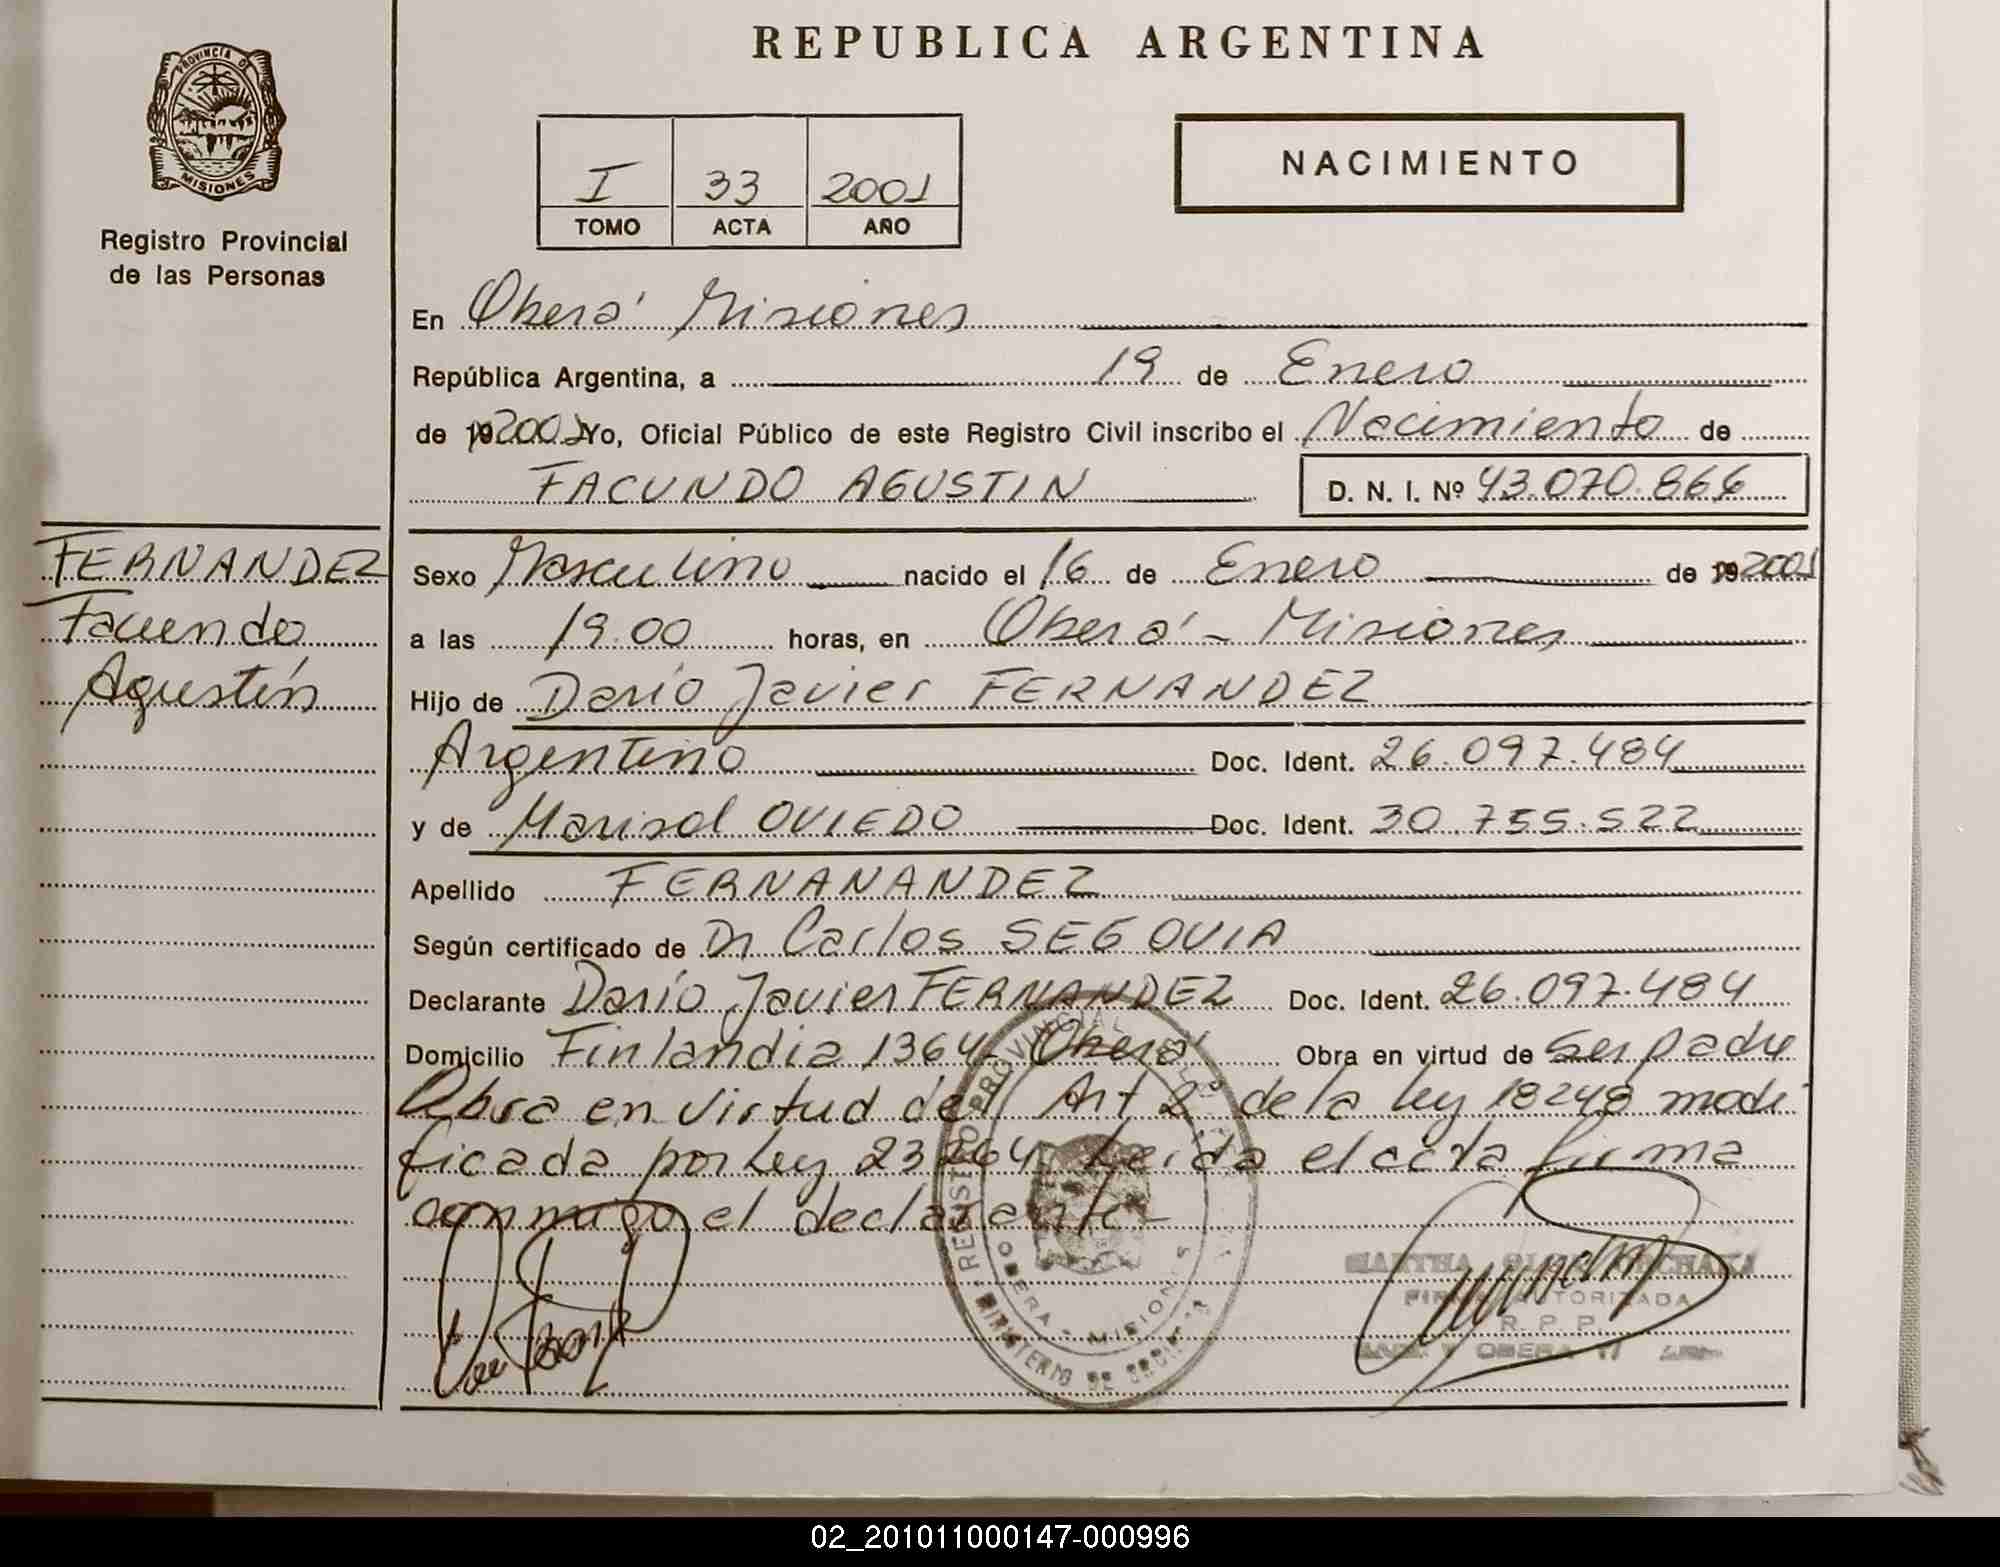 REPUBLICA ARGENTINA
PROVINCIA DE
MISIONES
Registro Provincial
de las Personas
I 33 2001
TOMO ACTA AÑO
NACIMIENTO
En Oberá Misiones
República Argentina, a 19 de Enero
de 192001 Yo, Oficial Público de este Registro Civil inscribo el Nacimiento de
FACUNDO AGUSTIN D. N. I. Nº 43.070.866
FERNANDEZ
Facundo
Agustín
Sexo Masculino nacido el 16 de Enero de 192001
a las 19.00 horas, en Oberá - Misiones
Hijo de Darío Javier FERNANDEZ
Argentino Doc. Ident. 26.097.484
y de Marisol OVIEDO Doc. Ident. 30.755.522
Apellido FERNANANDEZ
Según certificado de Dr Carlos SEGOVIA
Declarante Darío Javier FERNANDEZ Doc. Ident. 26.097.484
Domicilio Finlandia 1364- Oberá Obra en virtud de Ser padre
Obra en virtud del Art 2º de la Ley 18248 modi
ficada por Ley 23264 Leida el acta firma
conmigo el declarante-
REGISTRO PROVINCIAL
OBERA - MISIONES
MINISTERIO DE
MARTHA
FIRMA AUTORIZADA
R. P. P.
OBERA
02_201011000147-000996